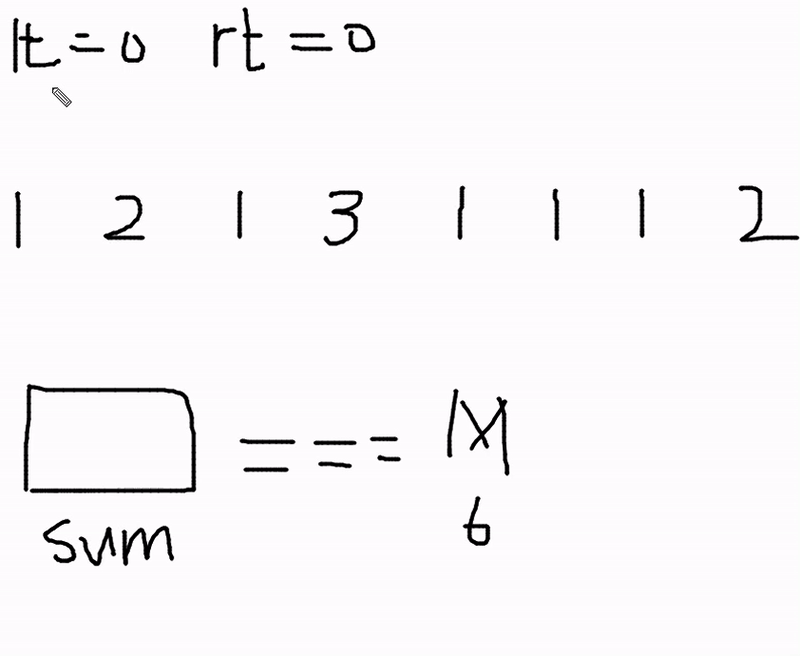 lt = 0 rt = 0
1 2 1 3 1 1 1 2
=== M
sum 6